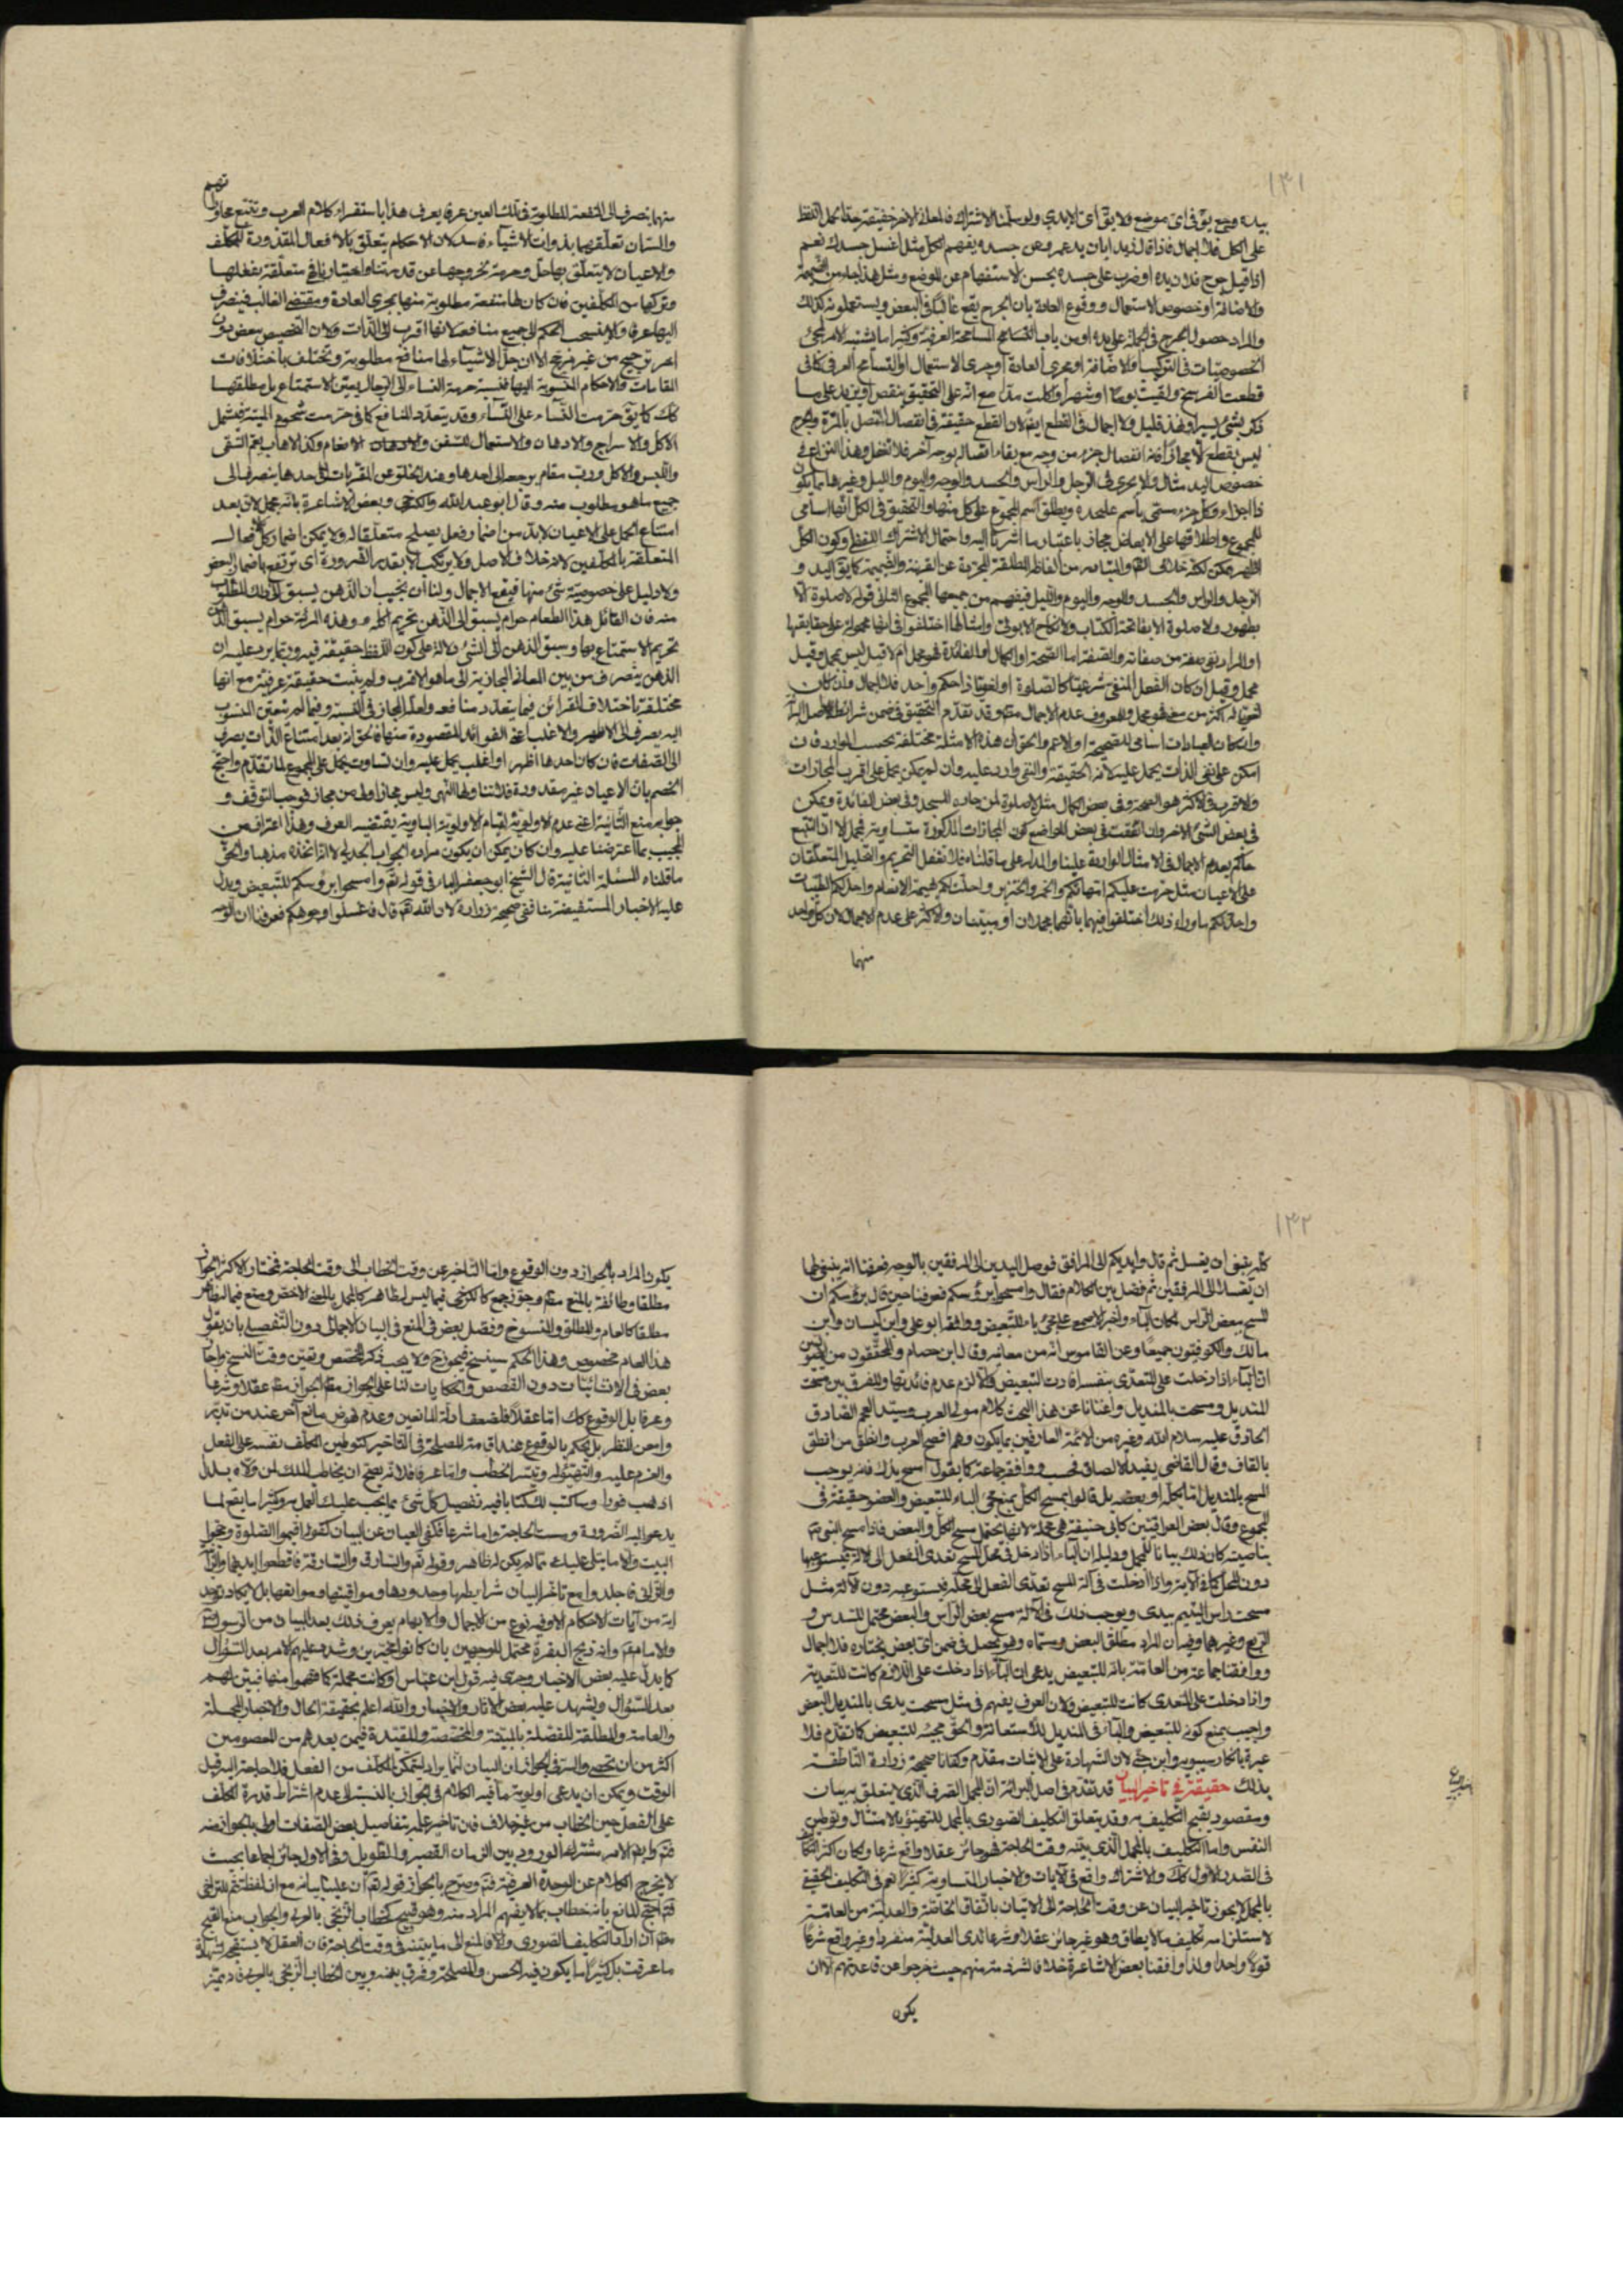 ١٣١
بيده وجع يق فى اى موضع ولا يق اى الايدى ولو سلمنا الاشتراك فالمعانى الاخر حقيقة حتى يحمل اللفظ
على الكل فلا اجمال فاذا قال لزيد ابان يد عمرو عن جسده يفهم الكل مثل اغسل جسدك نعم
اذا قيل جرح فلان يده او ضرب على جسده يحسن الاستفهام عن الموضع ومثل هذا جاء من الضميمة
والاضافة او خصوص الاستعمال ووقوع العادة بان الجرح يقع غالبا فى البعض ويستعملونه كذلك
والمراد حصول الجرح فى الجملة على يده او من باب التسامح المسامحة العرفية وكثيرا ما يشتبه الامر لمجئ
الخصوصيات فى التركيب والاضافة او مجرى العادة او جرى الاستعمال او التسامح العرفى كما فى
قطعت الفرسخ ولقيت يوما او شهرا واكلت مدا مع انه على التحقيق ينقص او يزيد على ما
ذكر بشئ يسير او نفذ قليل ولا اجمال فى القطع ايضا لان القطع حقيقة فى انفصال المتصل بالمرة والجرح
ليس بقطع الا مجازا فانه انفصال جزء من وجه مع بقاء اتصاله بوجه آخر فلا تغفل وهذا النزاع فى
خصوص اليد مثال والا يجرى فى الرجل والراس والجسد والوجه واليوم والليل وغيرها مما يكون
ذا اجزاء وكل جزء مسمى باسم عليحدة ويطلق اسم المجموع على كل منها والتحقيق فى الكل انها اسامى
للمجموع واطلاقها على الابعاض مجاز باعتبار ما اشرنا اليه واحتمال الاشتراك اللفظى وكون الكل
اظهر ممكن لكنه خلاف والتبادر من الفاظ المطلقة المجردة عن القرينة والضميمة كما يق اليد و
الرجل والراس والجسد والوجه واليوم والليل فيفهم من جميعها المجموع الثانى قوله لا صلوة الا
بطهور ولا صلوة الا بفاتحة الكتاب ولا نكاح الا بولى وامثالها اختلفوا فى انها محمولة على حقايقها
او المراد نفى صفة من صفاته والصفة اما الصحة او الكمال او الفائدة فهو مجمل ام لا قيل ليس بمجمل وقيل
مجمل وقيل ان كان الفعل المنفى شرعيا كالصلوة او لغويا ذا حكم واحد فلا اجمال وان كان
لغويا له اكثر من فهو مجمل والمعروف عدم الاجمال وقد تقدم التحقيق فى ضمن شرائط الاصل
وان كان العبادات اسامى للصحيحة او الاعم والحق ان هذه الامثلة مختلفة بحسب الموارد فان
امكن على نفى الذات يحمل عليه لانه الحقيقة والنفى وارد عليه وان لم يمكن يحمل على اقرب المجازات
والاقرب فى الاكثر هو الصحة وفى بعض الكمال مثل لا صلوة لمن جار المسجد وفى بعض الفائدة ويمكن
فى بعض الشئ الاخر وان اتفقت فى بعض المواضع كون المجازات المذكورة متساوية فمجمل الا ان التتبع
حاكم بعدم الاجمال فى الامثال الواردة علينا والمدار على ما قلناه فلا تغفل التحريم والتحليل المتعلقان
على الاعيان مثل حرمت عليكم امهاتكم والخمر والخنزير واحلت لكم بهيمة الانعام واحل لكم الطيبات
واحل لكم ما وراء ذلك اختلفوا فيهما بانهما مجملان او مبينان والاكثر على عدم الاجمال لان كل واحد
منهما
منهما ينصرف الى المنفعة المطلوبة فى تلك العين عرفا يعرف هذا باستقراء كلام العرب وتتبع محاوراتهم
والستان تعلقهما بذوات الاشياء فاسد لان الاحكام يتعلق بالافعال المقدورة للمكلف
والاعيان لا يتعلق بها حل وحرمة لخروجها عن قدرتنا واختيارنا فهى متعلقة بفعلها
وتركها من المكلفين فان كان لها منفعة مطلوبة منها بمجرى العادة ومقتضى الغالب فينصرف
اليها عرفا والا فينسحب الحكم الى جميع منافعه لانها اقرب الى الذات ولان التخصيص ببعض دون
آخر ترجيح من غير مرجح الا ان جل الاشياء لها منافع مطلوبة وتختلف باختلافات
المقامات والاحكام المنسوبة اليها فنسبة حرمة النساء الى الرجال يعين الاستمتاع بل مطلقها
كذلك كما يق حرمت النساء على النساء وقد يتعدد المنافع كما فى حرمت شحوم الميتة فيشمل
الاكل والاسراج والادهان والاستعمال للسفن والادهان الانعام وكذا الاهاب يعم السقى
واللبس والاكل ورب مقام يرجع الى احدها وعند الخلو عن المقربات الى احدها ينصرف الى
جميع ما هو مطلوب منه وقال ابو عبد الله والكرخى وبعض الاشاعرة بانه مجمل لانه بعد
امتناع الحمل على الاعيان لا بد من اضمار فعل يصلح متعلقا له ولا يمكن اضمار كل الافعال
المتعلقة بالمكلفين لانه خلاف الاصل ولا يرتكب الا بقدر الضرورة اى ترتفع باضمار البعض
ولا دليل على خصوصية شئ منها فيقع الاجمال ولنا ان نجيب ان الذهن يسبق الى ذلك المطلوب
منه فان القائل هذا الطعام حرام يسبق الى الذهن تحريم اكله وهذه المرئة حرام يسبق الى الذهن
تحريم الاستمتاع بها وسبق الذهن الى الشئ دلالة على كون اللفظ حقيقة فيه وربما يرد عليه ان
الذهن يتصرف من بين المعانى المجازية الى ما هو الاقرب ولم يثبت حقيقة عرفية مع انها
مختلفة باختلاف القرائن فيما يتعدد منافعه ولعل المجاز فى النسبة وفيما لم يتعين المنسوب
اليه يصرف الى الاظهر والاغلب من الفوائد المقصودة منها فالحق انه بعد امتناع الذات يصرف
الى الصفات فان كان احدها اظهر او اغلب يحمل عليه وان تساوت يحمل على المجموع لما تقدم واحتج
الخصم بان الاعيان غير مقدورة فلا يتناولها النهى وليس مجاز اولى من مجاز فوجب التوقف و
جوابه منع الثانية اعنى عدم الاولوية لقيام الاولوية الباوية يقتضيه العرف وهذا اعتراف من
المجيب بما اعترضنا عليه وان كان يمكن ان يكون مراده الجواب الجدلى لا اتخاذه مذهبا والحق
ما قلناه المسئلة الثانية قال الشيخ ابو جعفر الباء فى قوله تعم وامسحوا برؤسكم للتبعيض ويدل
عليه الاخبار المستفيضة منا ففى صحيحة زرارة لان الله تعم قال فاغسلوا وجوهكم فعرفنا ان الوجه
١٣٢
كله ينبغى ان يغسل ثم قال وايديكم الى المرافق فوصل اليدين الى المرفقين بالوجه فعرفنا انه ينبغى لهما
ان تغسلا الى المرفقين ثم فصل بين الكلام فقال وامسحوا برؤسكم فعرفنا حين قال برؤسكم ان
المسح ببعض الراس لمكان الباء واخبر الاصمعى على مجئ باء للتبعيض ووافقه ابو على وابن كيسان وابن
مالك والكوفيون جميعا وعن القاموس انه من معانيه وقال ابن هشام والمحققون من
ان الباء اذا دخلت على المتعدى بنفسه افادت التبعيض والا لزم عدم فائدتها وللفرق بين مسحت
المنديل ومسحت بالمنديل واغنانا عن هذا البحث كلام مولى العرب وسيد العجم الصادق
الحاذق عليه سلام الله وغيره من الائمة العارفين بما يكون وهم افصح العرب وانطق من انطق
بالقاف وقال القاضى يفيد الالصاق فحسب ووافقه جماعة كما يقول امسح يدك فانه يوجب
المسح بالمنديل اما بكله او بعضه بل قالوا بمسح الكل بمنع مجئ الباء للتبعيض والعضو حقيقة فى
المجموع وقال بعض العراقيين كابى حنيفة هى مجملة لانها يحتمل مسح الكل والبعض فاذا مسح النبى ص
بناصيته كان ذلك بيانا للمجمل ودليله ان الباء اذا دخل فى محل المسح تعدى الفعل الى الالة فيستوعبها
دون المحل كما فى الآية واذا دخلت فى آلة المسح تعدى الفعل الى محله فيستوعبه دون الآلة مثل
مسحت راس اليتيم بيدى ويوجب ذلك فى الآلة مسح بعض الراس والبعض محتمل للسدس و
الربع وغيرهما وفيه ان المراد مطلق البعض ومسماه وهو يحصل فى ضمن اى بعض يختاره فلا اجمال
ووافقنا جماعة من العامة بانه للتبعيض يدعى ان الباء اذا دخلت على اللازم كانت للتعدية
واذا دخلت على المتعدى كانت للتبعيض ولان العرف يفهم فى مثل مسحت يدى بالمنديل البعض
واجيب بمنع كونه للتبعيض والباء فى المنديل للاستعانة والحق مجيئه للتبعيض كما تقدم فلا
عبرة بانكار سيبويه وابن جنى لان الشهادة على الاثبات مقدم وكفانا صحيحة زرارة الناطقة
بذلك حقيقة فى تاخير البيان قد تقدم فى اصل البرائة ان المجمل الصرف الذى لا يتعلق به بيان
ومقصود يقبح التكليف به وقد يتعلق التكليف الصورى بالمجمل للتهيؤ بالامتثال وتوطين
النفس واما التكليف بالمجمل الذى يبينه وقت الحاجة فهو جائز عقلا واقع شرعا وكان اكثر
فى الصدر الاول كذلك والاشتراك واقع فى الآيات والاخبار المتساوية كثيرا نعم فى التكليف الحقيقى
بالمجمل لا يجوز تاخير البيان عن وقت الحاجة الى الاتيان باتفاق الخاصة والعدلية من العامة
لاستلزامه تكليف ما لا يطاق وهو غير جائز عقلا وشرعا لدى العدلية منفردا وغير واقع شرعا
قولا واحدا ولذا وافقنا بعض الاشاعرة خلافا لشرذمة منهم حيث خرجوا عن قاعدتهم الا ان
يكون
يكون المراد بالجواز دون الوقوع واما التاخير عن وقت الخطاب الى وقت الحاجة فمختار الاكثر الجواز
مطلقا وطائفة بالمنع مطلقا وجوز جمع كالكرخى فيما ليس له ظاهر كالمجمل بالمعنى الاخص ومنع فيما له ظاهر
مطلقا كالعام والمطلق والمنسوخ وفصل بعض فى المنع فى البيان الاجمالى دون التفصيلى بان يقول
هذا العام مخصوص وهذا الحكم سينسخ فيجوز ح ولا يجب ذكر المخصص وتعين وقت النسخ واجاز
بعض فى الانشائيات دون القصص والحكايات لنا على الجواز مطلقا الجواز عقلا وشرعا
وعرفا بل الوقوع كذلك اما عقلا فلضعف ادلة المانعين وعدم نهوض مانع آخر عند من تدبر
وامعن النظر بل يحكم بالوقوع عند اقامة المصلحة فى التاخير كتوطين المكلف نفسه على الفعل
والعزم عليه والتهيؤ له وتيسر الخطب واما عرفا فلانه يصح ان يخاطب الملك لمن ولاه ببلدة
اذهب فورا وساكتب لك كتابا فيه تفصيل كل شئ مما يجب عليك العمل به وكثيرا ما يقع لما
يدعو اليه الضرورة ومست الحاجة واما شرعا فكفى العيان عن البيان كقوله اقيموا الصلوة وحجوا
البيت والا ما يتلى عليك مما لم يكن له ظاهر وقوله تعم والسارق والسارقة فاقطعوا ايديهما والزانى
والزانية فاجلدوا مع تاخر البيان شرايطها وحدودها ومواقيتها وموانعها بل لا يكاد توجد
آية من آيات الاحكام الا وفيه نوع من الاجمال والابهام يعرف ذلك بعد البيان من الرسول ص
والامام ع وآية ذبح البقرة محتمل للوجهين بان كانوا مخيرين وشدد عليهم الامر بعد السؤال
كما يدل عليه بعض الاخبار وجرى فيه قول ابن عباس او كانت مجملة كما فهموا منها فبين لهم
بعد السؤال ويشهد عليه بعض الاثار والاخبار والله اعلم بحقيقة الحال والاخبار المجملة
والعامة والمطلقة المفصلة بالمبينة والمخصصة والمقيدة فيمن بعدهم من المعصومين
اكثر من ان تحصى والسر فى الجواز ان البيان انما يراد ليتمكن المكلف من الفعل فلا حاجة اليه قبل
الوقت ويمكن ان يدعى اولوية ما فيه الكلام فى الجواز بالنسبة الى عدم اشتراط قدرة المكلف
على الفعل حين الخطاب من غير خلاف فان تاخير علمه بتفاصيل بعض الصفات اولى بالجواز منه
لاشتراك المورد بين الزمان القصير والطويل وفى الاول جائز اجماعا بحيث
لا يخرج الكلام عن الوحدة العرفية وصرح بالجواز قوله تعم ان علينا بيانه مع ان لفظة ثم للتراخى
احتج المانع بانه خطاب بما لا يفهم المراد منه وهو قبيح كخطاب الزنجى بالعربى والجواب منع القبح
ان اراد التكليف الصورى والا فالمنوى الى ما يتبينه فى وقت الحاجة فان العقل لا يستقبحه
ما عرفت بل كثيرا ما يكون فيه الحسن والمصلحة وفرق بينه وبين الخطاب الزنجى بالعربى